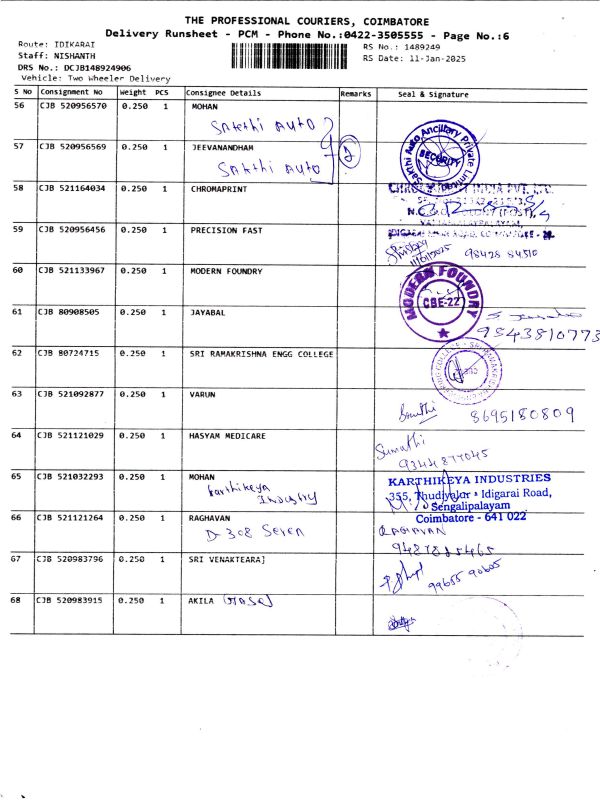 THE PROFESSIONAL COURIERS, COIMBATORE
Delivery Runsheet - PCM - Phone No.:0422-3505555 - Page No.:6
Route: IDIKARAI
RS No.: 1489249
Staff: NISHANTH
RS Date: 11-Jan-2025
DRS No.: DCJB148924906
Vehicle: Two Wheeler Delivery
S No Consignment No Weight PCS Consignee Details Remarks Seal & Signature
56 CJB 520956570 0.250 1 MOHAN
Sakthi Auto
57 CJB 520956569 0.250 1 JEEVANANDHAM
Sakthi Auto 2
Sakthi Auto Ancillary Private SECURITY
58 CJB 521164034 0.250 1 CHROMAPRINT
INDIA PVT. LTD.
59 CJB 520956456 0.250 1 PRECISION FAST
11/01/2025 98428 84510
60 CJB 521133967 0.250 1 MODERN FOUNDRY
MODERN FOUNDRY CBE-22
61 CJB 80908505 0.250 1 JAYABAL
9543810773
62 CJB 80724715 0.250 1 SRI RAMAKRISHNA ENGG COLLEGE
63 CJB 521092877 0.250 1 VARUN
8695180809
64 CJB 521121029 0.250 1 HASYAM MEDICARE
Sumathi
9344877045
65 CJB 521032293 0.250 1 MOHAN
Karthikeya
Industry
KARTHIKEYA INDUSTRIES
355, Thudiyalur - Idigarai Road,
Sengalipalayam
Coimbatore - 641 022
66 CJB 521121264 0.250 1 RAGHAVAN
D-308 Seven
RAGHAVAN
67 CJB 520983796 0.250 1 SRI VENAKTEARA]
99655 90605
68 CJB 520983915 0.250 1 AKILA